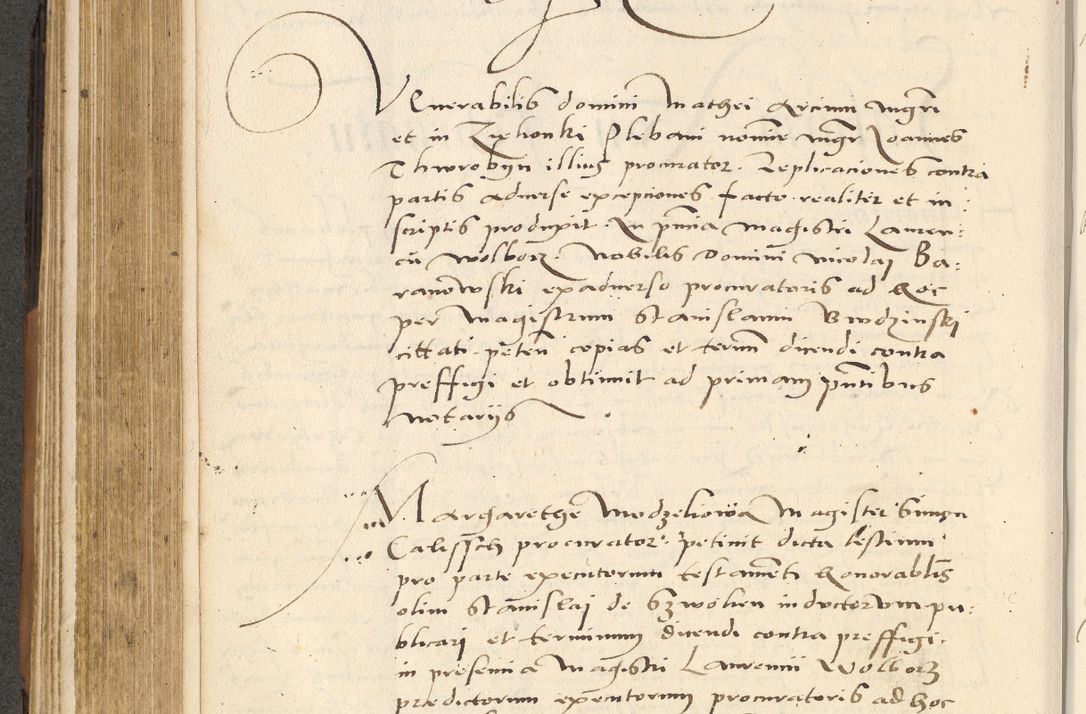 Venerabilis domini Mathei Arcium mgri
et in Zielionki Plebani nomine mgr Joannes
Thwrobyn illius procurator. Replicaciones contra
partis adverse excepciones facto realiter et in
scriptis produxit In pntia Magistri Lauren:
cii Wolborz. Nobilis Domini Nicolaj Ba:
ranowski exadverso procuratoris ad hoc
per Magistrum Stanislaum Bwdzinskj
cittati peten copias et termin dicendi contra
preffigi et obtinuit ad primam pntibus
Notariis
Margarethe Modzeliowa Magister Simon
Calissch procurator petiuit dicta testium
pro parte executorum testamenti honorablis
olim Stanislaj de Szwolien inductorum pu:
blicari et terminum dicendi contra preffigi.
in presentia Magistri Laurencii Wolborz
predictorum executorum procuratoris ad hoc